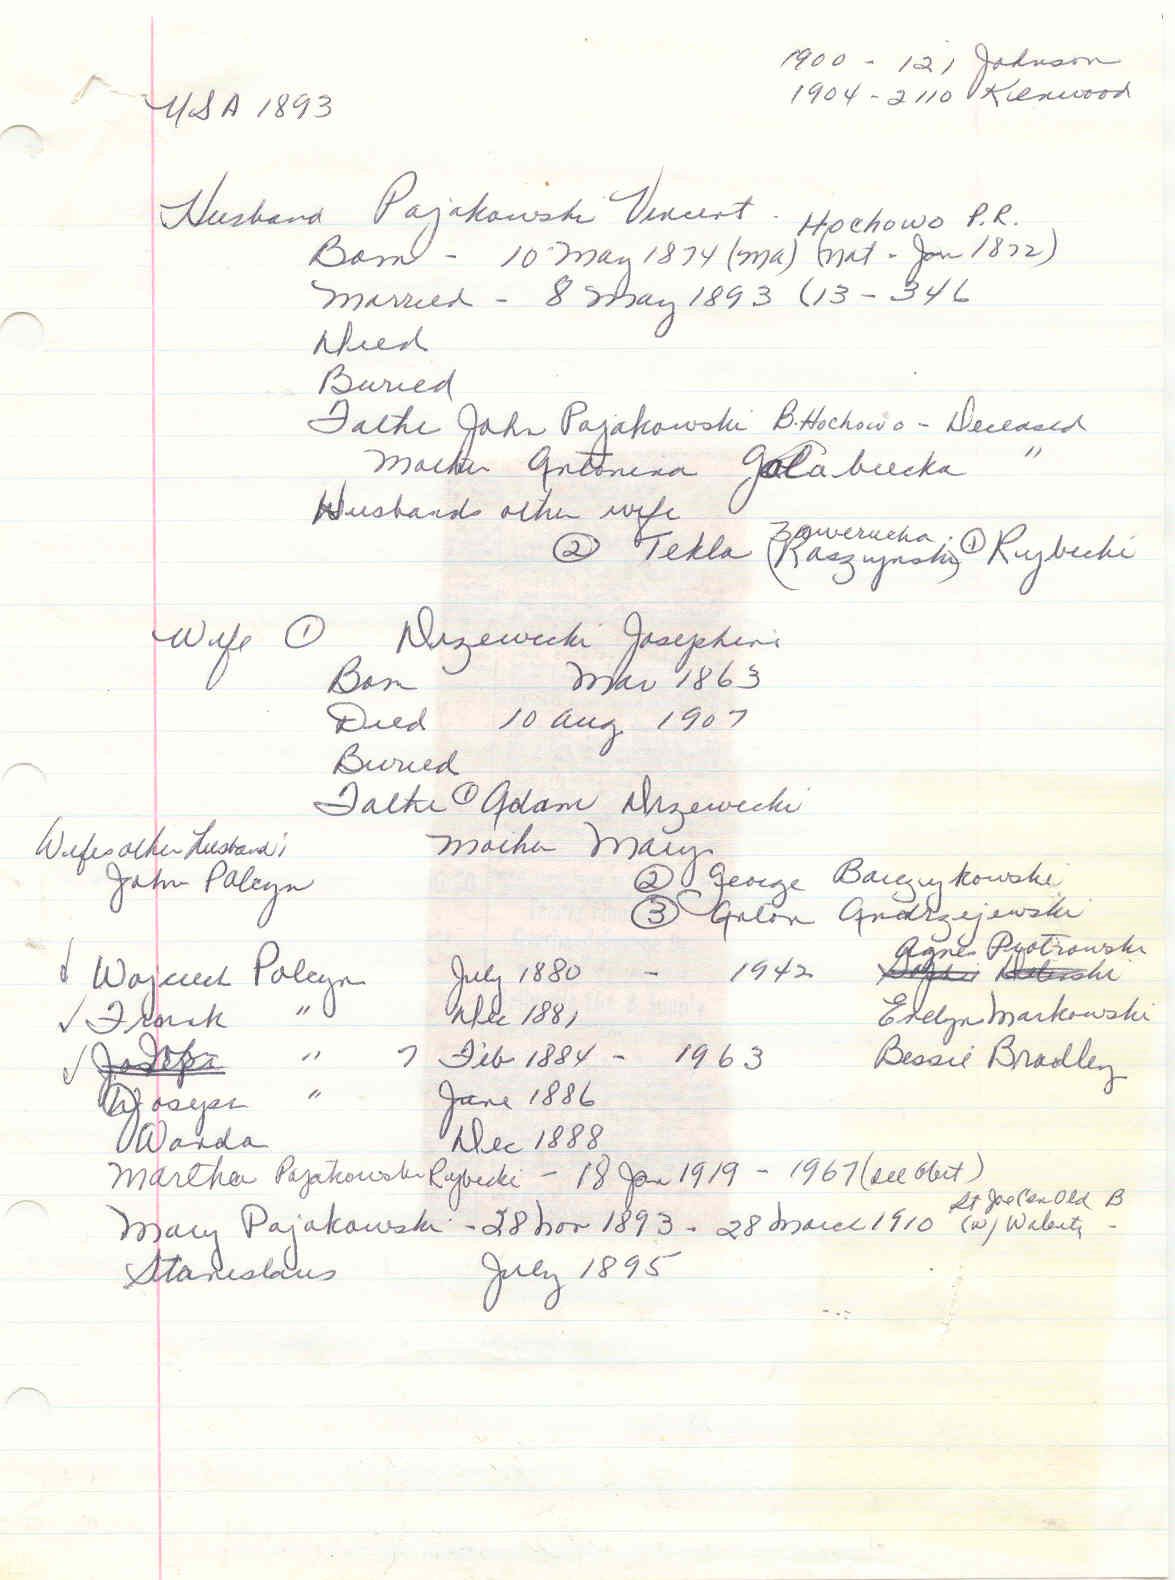 1900 - 121 Johnson
1904 - 2110 Kenwood
USA 1893
Husband Pajakowski Vincent - Hochowo P.R.
Born - 10 May 1874 (ma) (nat - Jan 1872)
Married - 8 May 1893 (13 - 346
Died
Buried
Fathe John Pajakowski B. Hochowo - Deceased
Mother Antonina Golabiecka "
Husbands other wife
② Tekla (Raszynski) ① Rujbecki
Zawerucha
Wife ① Drzewiecki Josephine
Born Mar 1863
Died 10 Aug 1907
Buried
Fathe ① Adam Drzewiecki
Wifes other husband;
Mother Mary
John Polcyn
② George Barczykowski
③ Anton Andrzejewski
Agnes Piotrowski
✓ Wojciech Polcyn July 1880 - 1942
✓ Frank " Dec 1881 Evelyn Markowski
✓ " 7 Feb 1884 - 1963 Bessie Bradley
" June 1886
Wanda Dec 1888
Martha Pajakowski Rujbecki - 18 Jan 1919 - 1967 (see Obit)
St Joe Cem Old B
Mary Pajakowski - 28 Nov 1893 - 28 March 1910 (N) -
Stanislaus July 1895